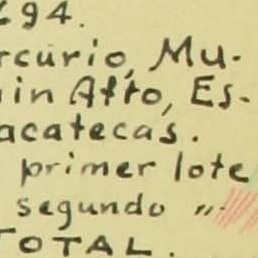 694.
rcurio, Mu-
in Alto, Es-
acatecas.
primer lote
segundo "
TOTAL.